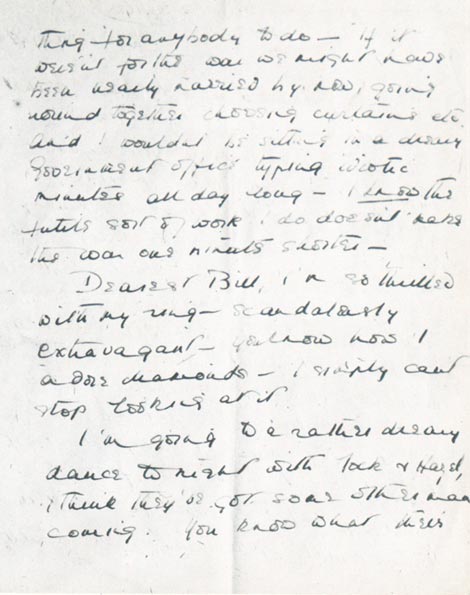 thing for anybody to do — if it
weren't for the war we might have
been nearly married by now, going
round together choosing curtains etc
And I wouldn't be sitting in a dreary
Government office typing idiotic
minutes all day long — I know the
futile sort of work I do doesn't make
the war one minute shorter —
Dearest Bill, I'm so thrilled
with my ring — scandalously
extravagant — you know how I
adore diamonds — I simply can't
stop looking at it.
I'm going to a rather dreary
dance to night with Jock & Hazel,
I think they've got some other man
coming. You know what their